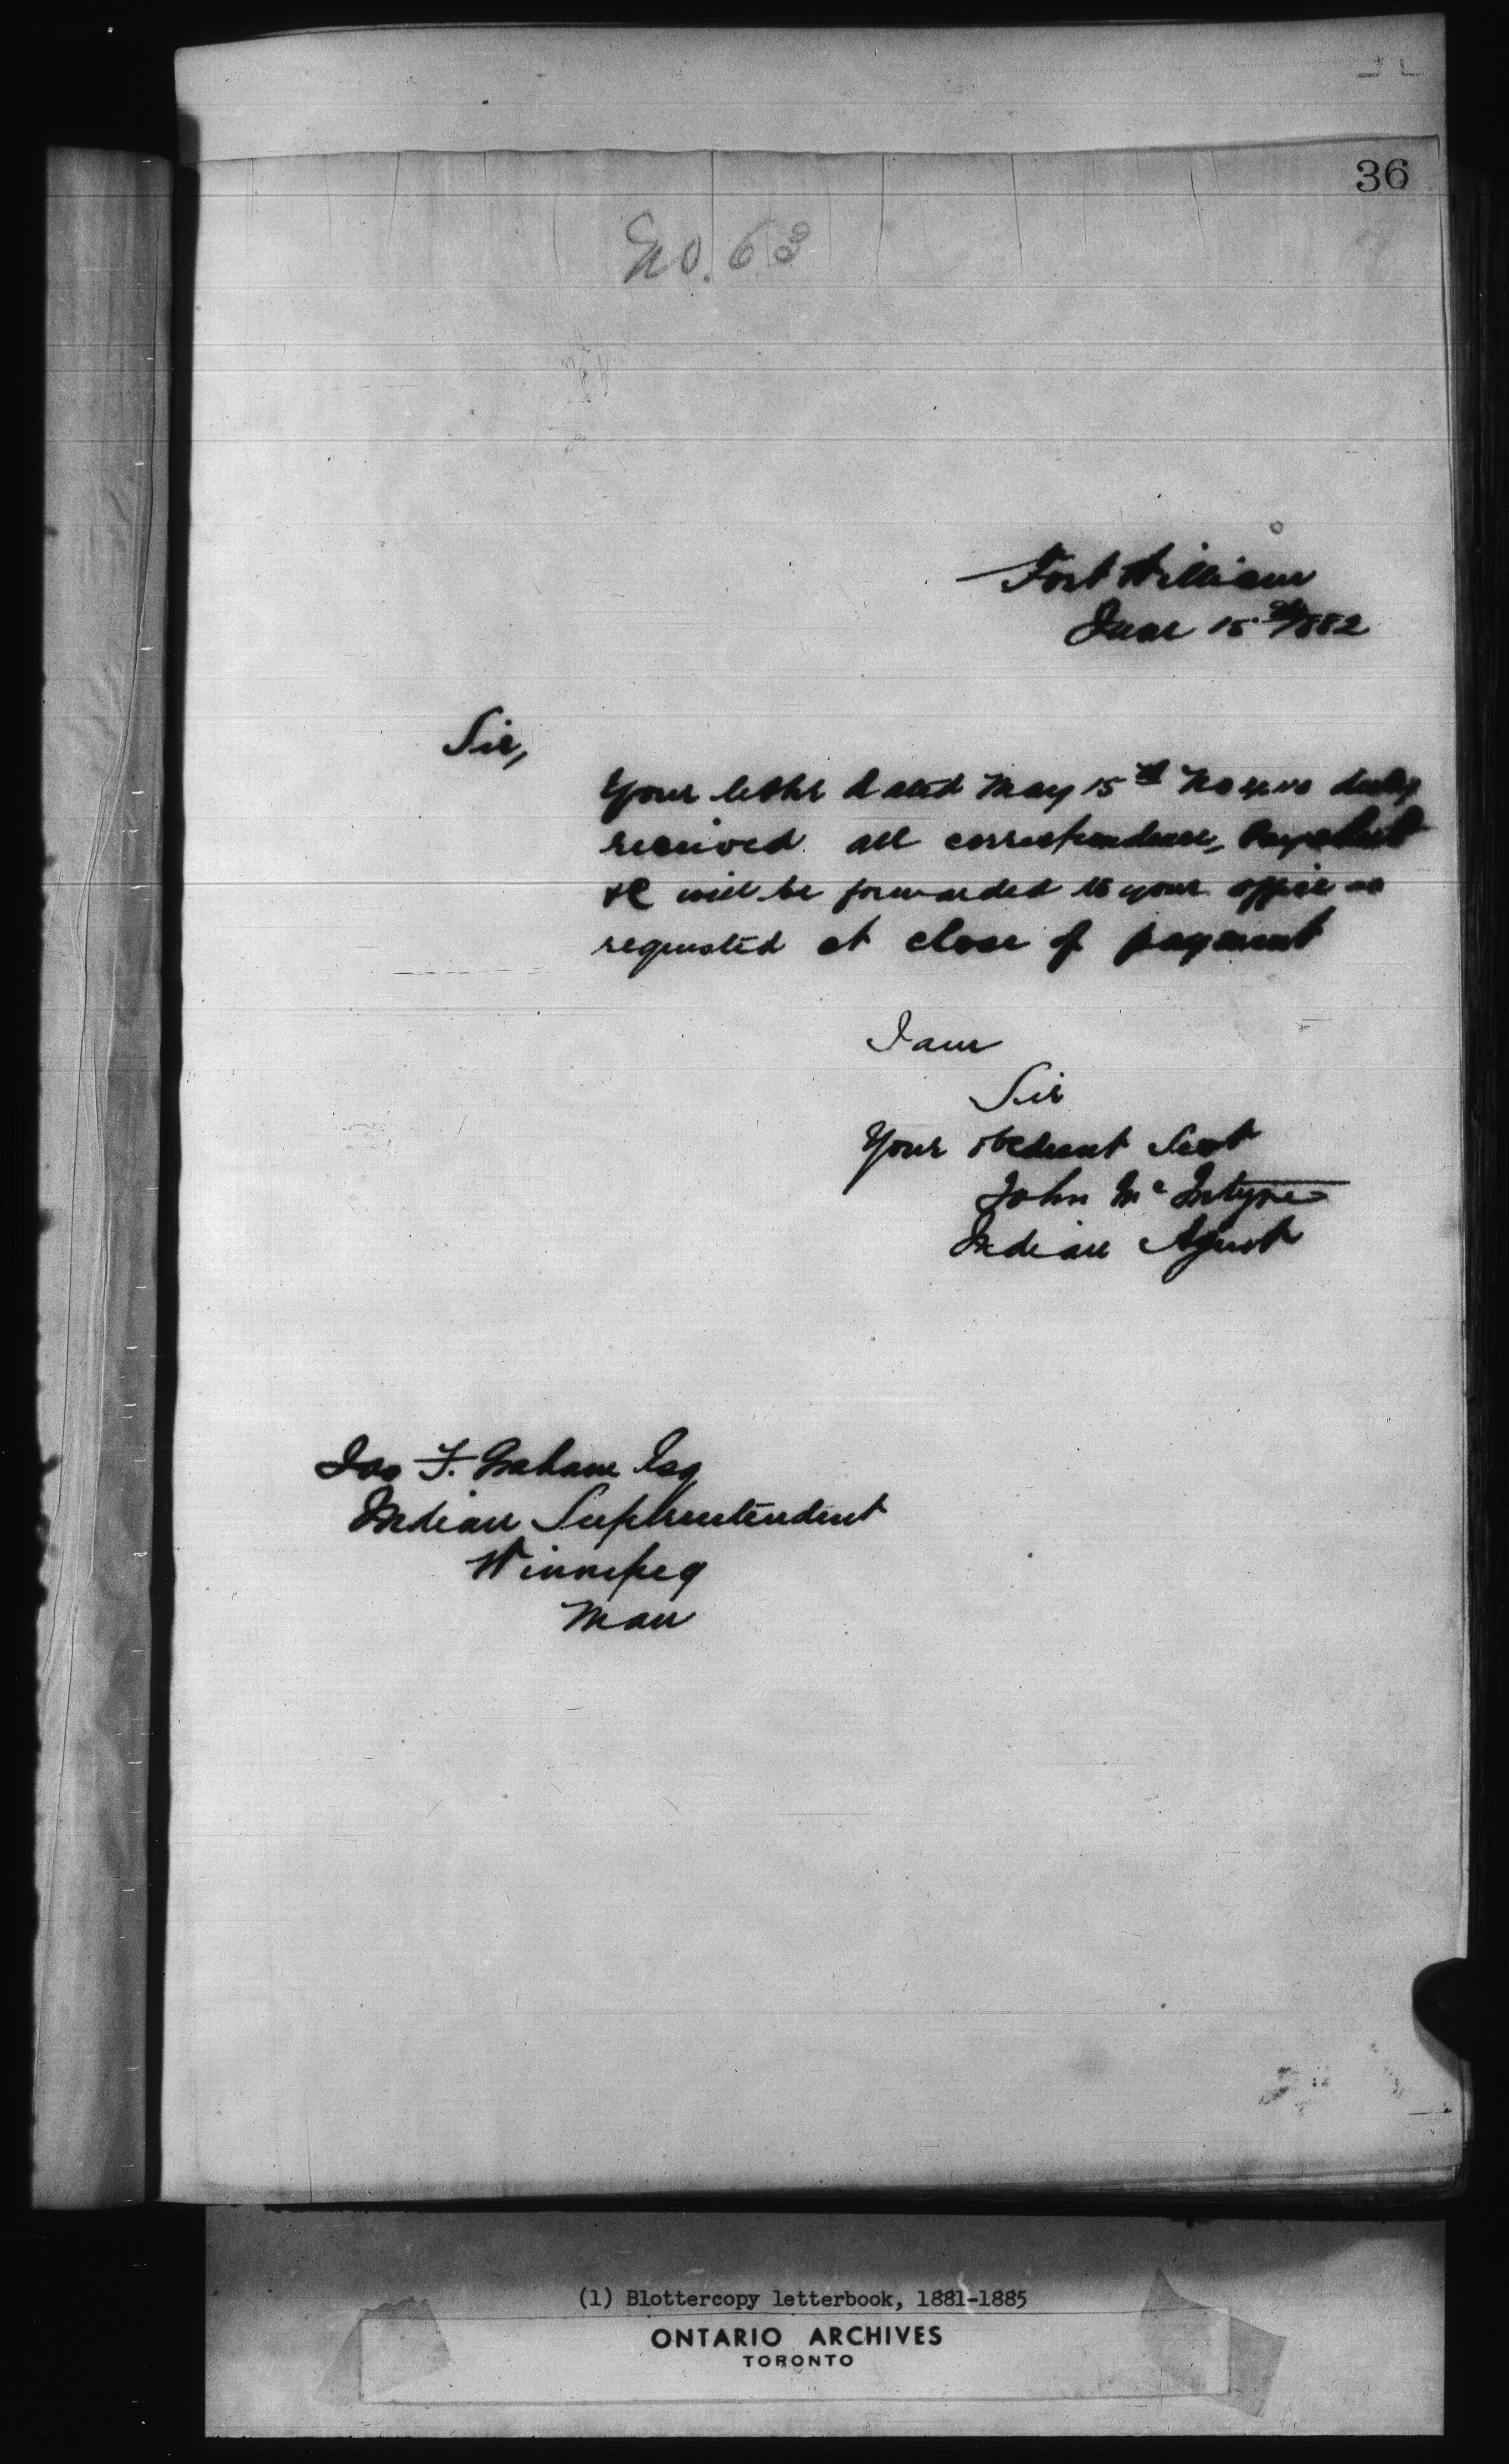 36
No. 63
Fort William
June 15th/1882
Sir,
Your letter dated May 15th No duly
received all correspondence, Paysheet
&C will be forwarded to your office as
requested at close of payment
I am
Sir
Your obedient Servt
John McIntyre
Indian Agent
Jas F. Graham Esq
Indian Superintendent
Winnipeg
Man
(1) Blottercopy letterbook, 1881-1885
ONTARIO ARCHIVES
TORONTO